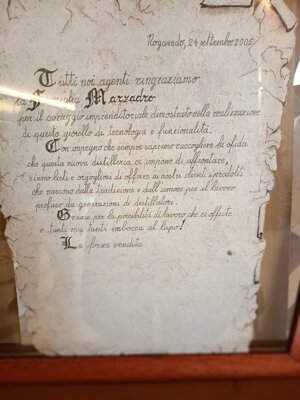 Nogaredo, 24 settembre 2005
Tutti noi agenti ringraziamo
La Famiglia Marzadro
per il coraggio imprenditoriale dimostrato nella realizzazione
di questo gioiello di tecnologia e funzionalità.
Con impegno che sempre sapremo raccogliere la sfida
che questa nuova distilleria ci impone di affrontare,
siamo lieti e orgogliosi di offrire ai nostri clienti i prodotti
che nascono dalla tradizione e dall'amore per il lavoro
profuso da generazioni di distillatori.
Grazie per la possibilità di lavoro che ci offrite
e tanti ma tanti imbocca al lupo!
La forza vendita